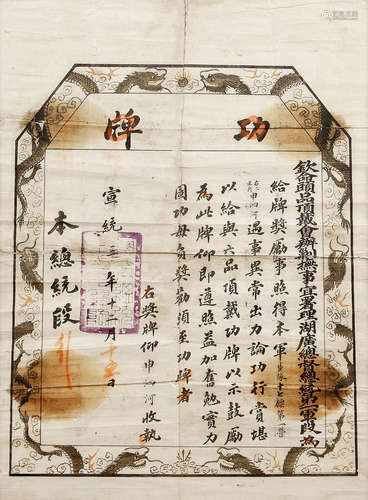 功牌
欽命頭品頂戴會辦剿撫事宜署理湖廣總督總統第二軍段為
給牌獎勵事照得本軍
申四河遇事異常出力論功行賞堪
以給與六品頂戴功牌以示鼓勵
為此牌仰即遵照益加奮勉實力
圖功毋負獎勸須至功牌者
右獎牌仰申四河收執
宣統三年十月十五日
本總統段